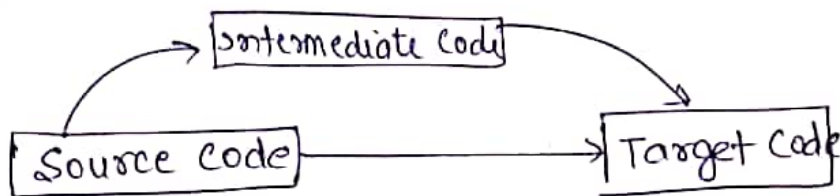 Intermediate Code
Source code
Target Code